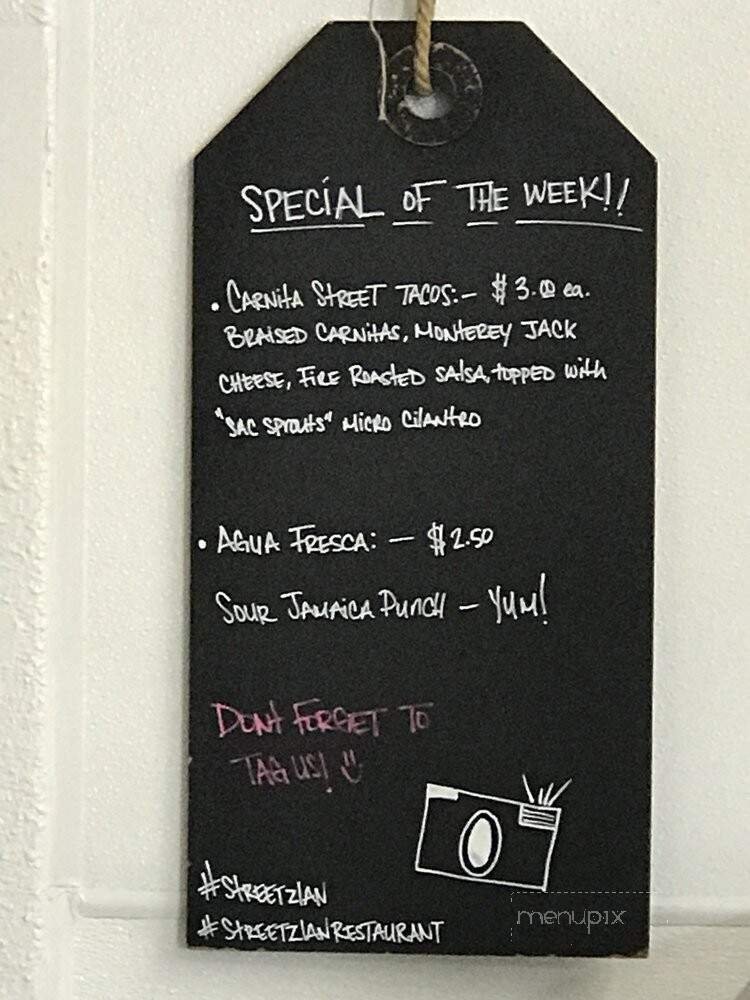 SPECIAL OF THE WEEK!!
• CARNITA STREET TACOS:- $3.00 ea.
BRAISED CARNITAS, MONTEREY JACK
CHEESE, FIRE ROASTED SALSA, TOPPED with
"SAC SPROUTS" MICRO CILANTRO
• AGUA FRESCA: - $2.50
SOUR JAMAICA PUNCH - YUM!
DONT FORGET TO
TAG US!
#STREETZLAN
#STREETZLANRESTAURANT
menupix